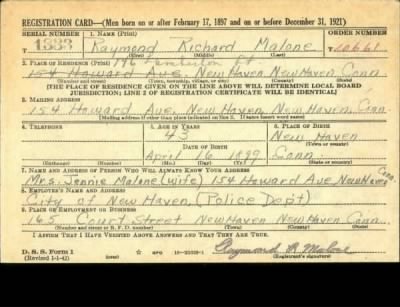 REGISTRATION CARD—(Men born on or after February 17, 1897 and on or before December 31, 1921)
SERIAL NUMBER 1. NAME (Print) ORDER NUMBER
Raymond Richard Malone
(First) (Middle) (Last)
2. PLACE OF RESIDENCE (Print)
154 Howard Ave, New Haven, New Haven, Conn
(Number and street) (Town, township, village, or city) (County) (State)
[THE PLACE OF RESIDENCE GIVEN ON THE LINE ABOVE WILL DETERMINE LOCAL BOARD
JURISDICTION; LINE 2 OF REGISTRATION CERTIFICATE WILL BE IDENTICAL]
3. MAILING ADDRESS
154 Howard Ave, New Haven, New Haven, Conn
[Mailing address if other than place indicated on line 2. If same insert word same]
4. TELEPHONE 5. AGE IN YEARS 6. PLACE OF BIRTH
43 New Haven
DATE OF BIRTH (Town or county)
April 16 1899 Conn
(Exchange) (Number) (Mo.) (Day) (Yr.) (State or country)
7. NAME AND ADDRESS OF PERSON WHO WILL ALWAYS KNOW YOUR ADDRESS
Mrs. Jennie Malone (wife) 154 Howard Ave, New Haven Conn
8. EMPLOYER'S NAME AND ADDRESS
City of New Haven, (Police Dept)
9. PLACE OF EMPLOYMENT OR BUSINESS
165 Court Street New Haven New Haven Conn.
(Number and street or R. F. D. number) (Town) (County) (State)
I AFFIRM THAT I HAVE VERIFIED ABOVE ANSWERS AND THAT THEY ARE TRUE.
D. S. S. Form 1
(Revised 1-1-42) (over) GPO Raymond R Malone
(Registrant's signature)